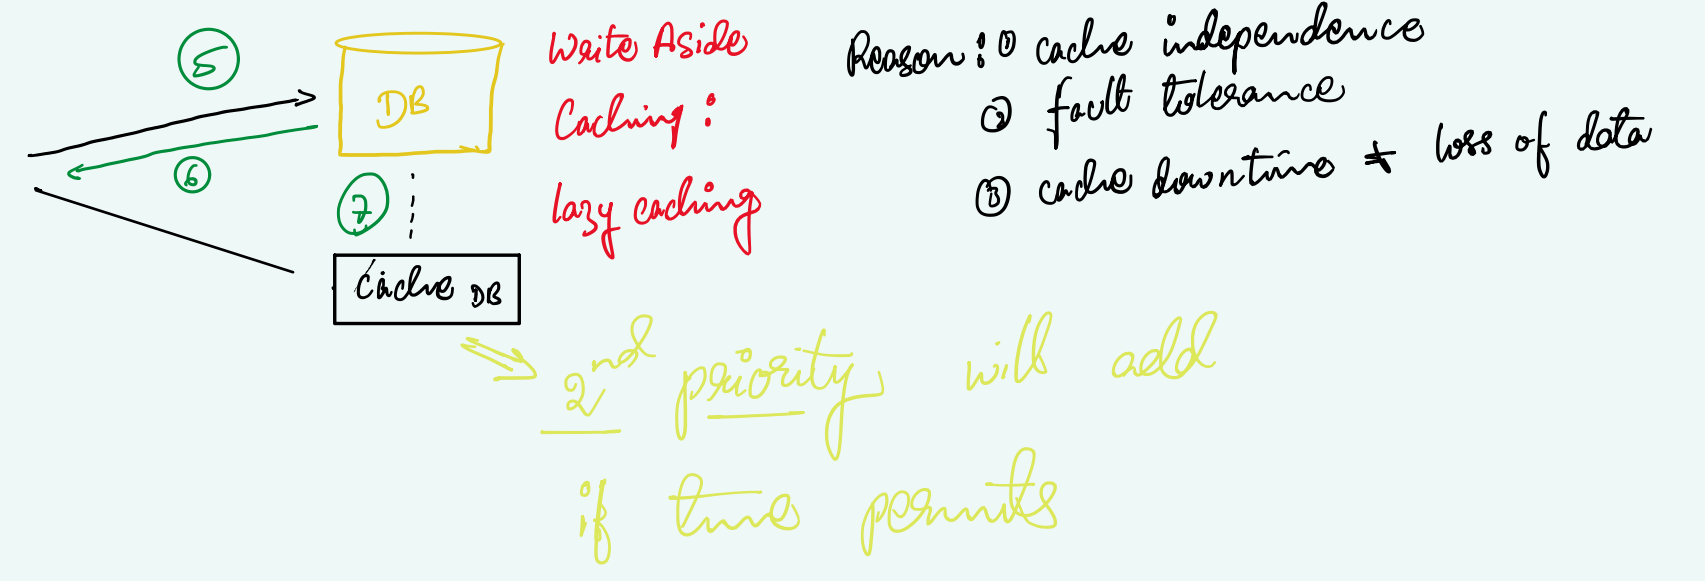 5
DB
6
7
Cache DB
Write Aside
Caching :
lazy caching
Reason : ① cache independence
② fault tolerance
③ cache downtime ≠ loss of data
2nd priority, will add
if time permits